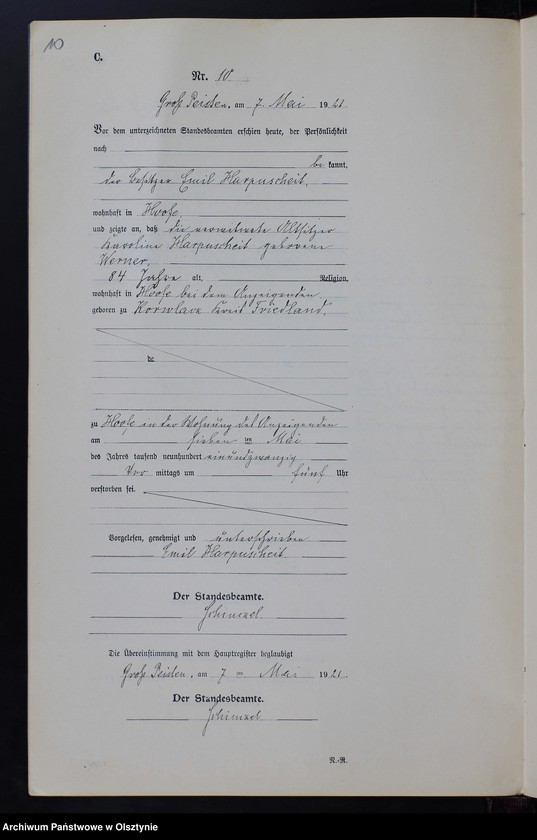 10
C.
Nr. 10
Groß Peisten, am 7. Mai 1921
Vor dem unterzeichneten Standesbeamten erschien heute, der Persönlichkeit
nach
be kannt,
der Besitzer Emil Harpuscheit,
wohnhaft in Hoofe,
und zeigte an, daß die verwitwete Altsitzer
Karoline Harpuscheit geborene
Werner,
84 Jahre alt, Religion,
wohnhaft in Hoofe bei dem Anzeigenden,
geboren zu Kreis Friedland,
de
zu Hoofe in der Wohnung des Anzeigenden
am sieben ten Mai
des Jahres tausend neunhundert einundzwanzig
Vor mittags um fünf Uhr
verstorben sei.
Vorgelesen, genehmigt und unterschrieben
Emil Harpuscheit
Der Standesbeamte.
Schimzel
Die Übereinstimmung mit dem Hauptregister beglaubigt
Groß Peisten, am 7 ten Mai 1921.
Der Standesbeamte.
Schimzel
N.-R.
Archiwum Państwowe w Olsztynie